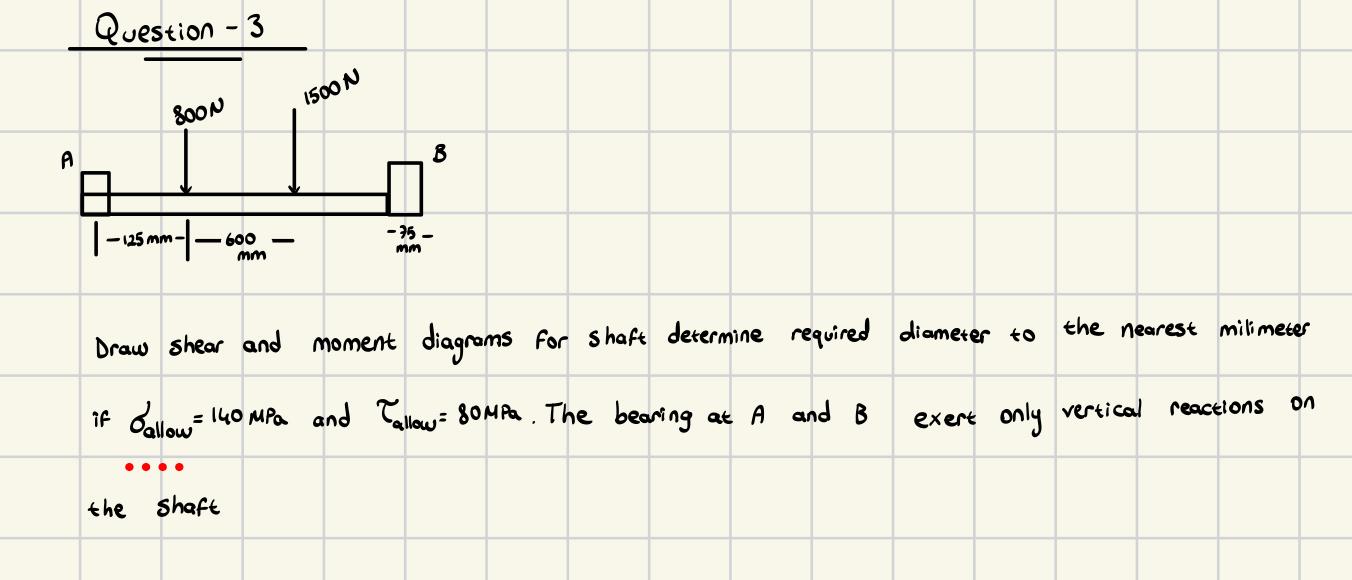 Question - 3
800N
1500N
A
B
-125mm-
600
mm
-75-
mm
Draw shear and moment diagrams for shaft determine required diameter to the nearest milimeter
if σallow = 140 MPa and τallow = 80MPa. The bearing at A and B exert only vertical reactions on
the shaft